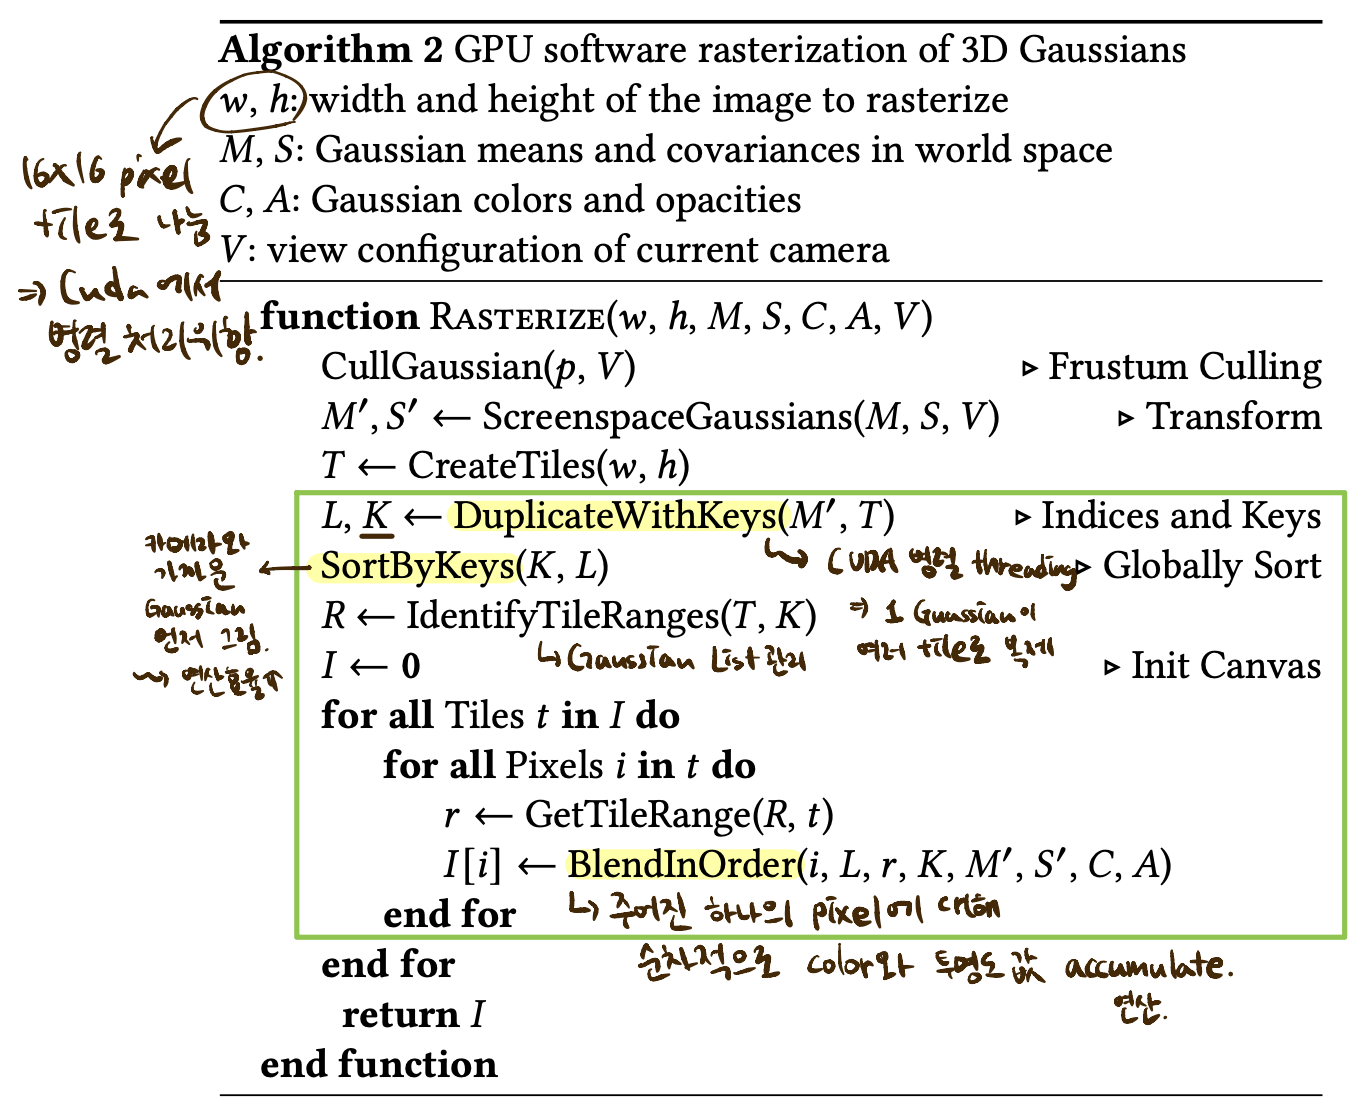 Algorithm 2 GPU software rasterization of 3D Gaussians
w, h: width and height of the image to rasterize
M, S: Gaussian means and covariances in world space
C, A: Gaussian colors and opacities
V: view configuration of current camera
16x16 pixel
tile로 나눔
⇒ Cuda에서
병렬 처리 위함.
function RASTERIZE(w, h, M, S, C, A, V)
CullGaussian(p, V) ▹ Frustum Culling
M′, S′ ← ScreenspaceGaussians(M, S, V) ▹ Transform
T ← CreateTiles(w, h)
L, K ← DuplicateWithKeys(M′, T) ▹ Indices and Keys
↳ CUDA 병렬 threading
⇒ 1 Gaussian이
여러 tile로 복제
SortByKeys(K, L) ▹ Globally Sort
카메라와
가까운
Gaussian
먼저 그림.
↝ 연산효율↑
R ← IdentifyTileRanges(T, K)
↳ Gaussian List 관리
I ← 0 ▹ Init Canvas
for all Tiles t in I do
for all Pixels i in t do
r ← GetTileRange(R, t)
I[i] ← BlendInOrder(i, L, r, K, M′, S′, C, A)
↳ 주어진 하나의 pixel에 대해
순차적으로 color와 투명도 값 accumulate.
연산.
end for
end for
return I
end function